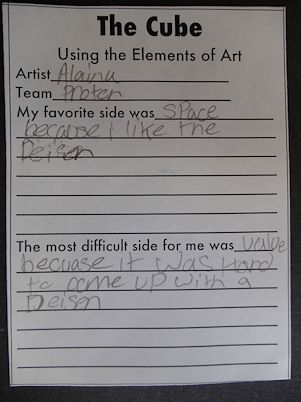 The Cube
Using the Elements of Art
Artist Alaina
Team Proten
My favorite side was space
because I like the
Deisen
The most difficult side for me was value
becuase it was Hard
to come up with a
Deisen